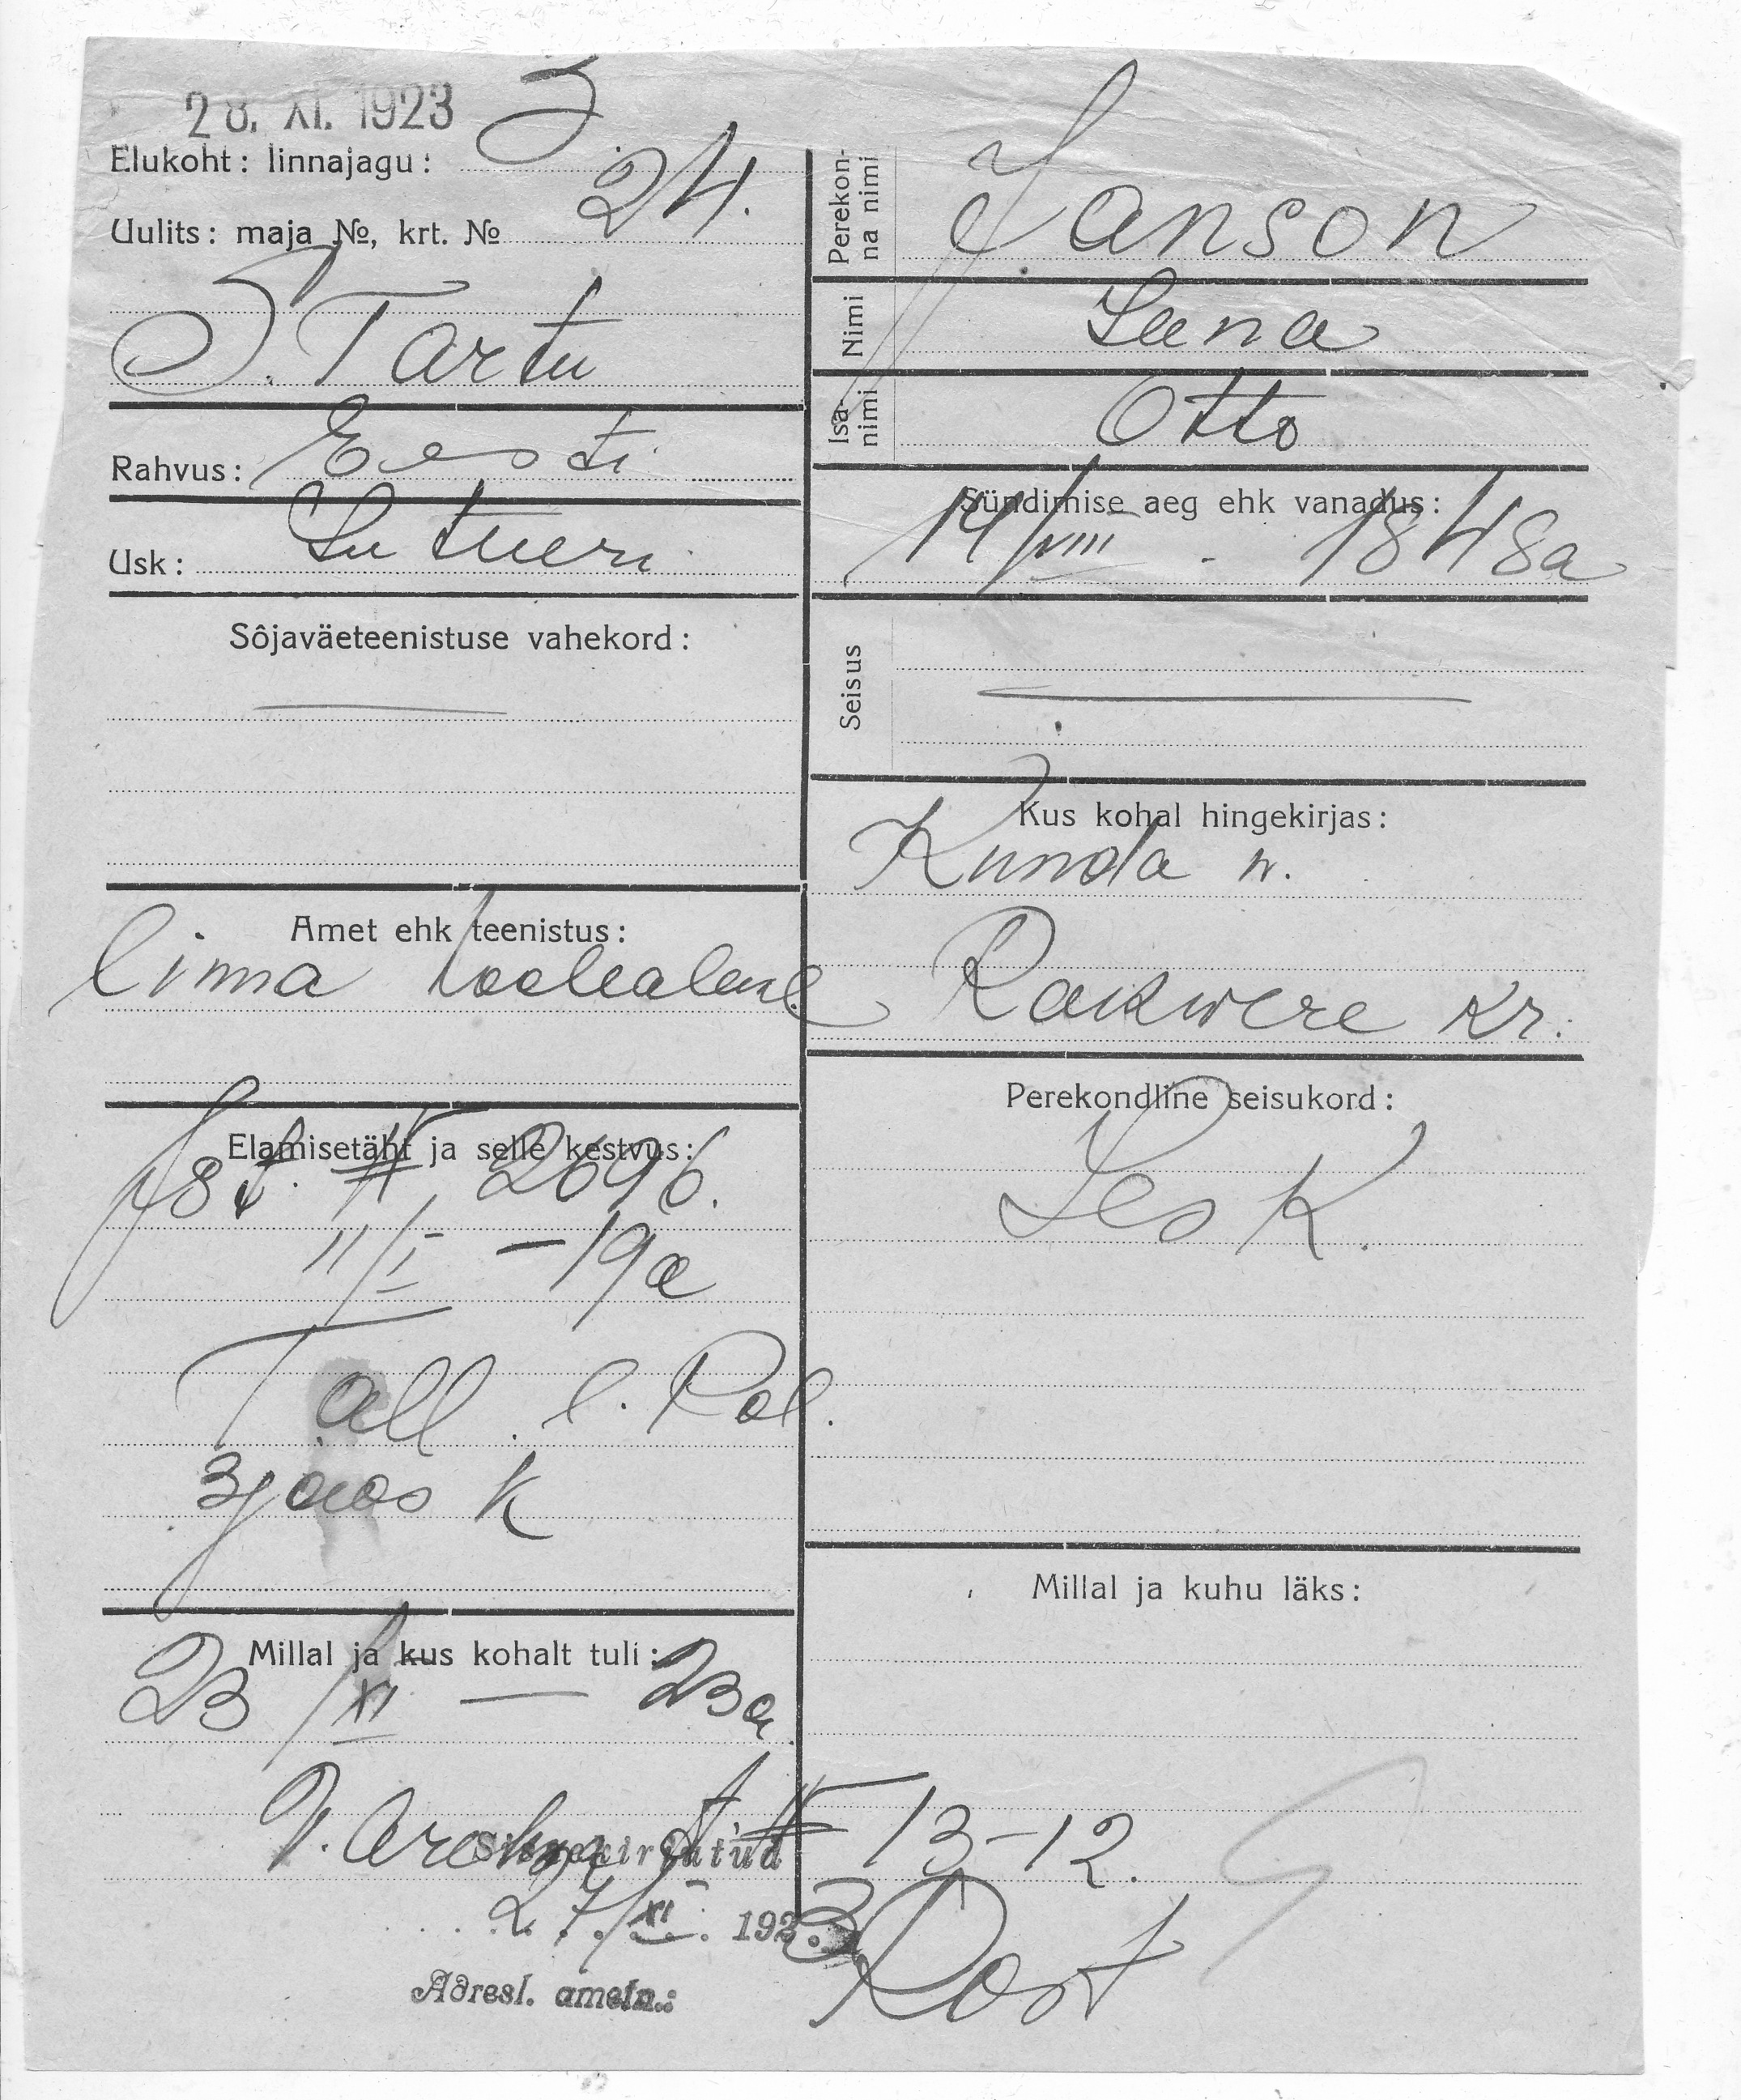 28. XI. 1923
Elukoht: linnajagu: 3
Uulits: maja №, krt. № 24.
S. Tartu
Rahvus: Eesti
Usk: Lutueri
Sôjaväeteenistuse vahekord:
Amet ehk teenistus:
linna hoolealune
Elamisetäht ja selle kestvus:
2696.
11/I – 19a
Tall. l. Pol.
3 jaos K
Millal ja kus kohalt tuli:
23/XI — 23a
Sissekirjutud
27/XI. 1923
Adresl. ametn.:
Perekonna nimi
Janson
Nimi
Leena
Isanimi
Otto
Sündimise aeg ehk vanadus:
14/VIII - 1848a
Seisus
Kus kohal hingekirjas:
Kunda w.
Rakwere kr.
Perekondline seisukord:
Lesk.
Millal ja kuhu läks:
13-12.